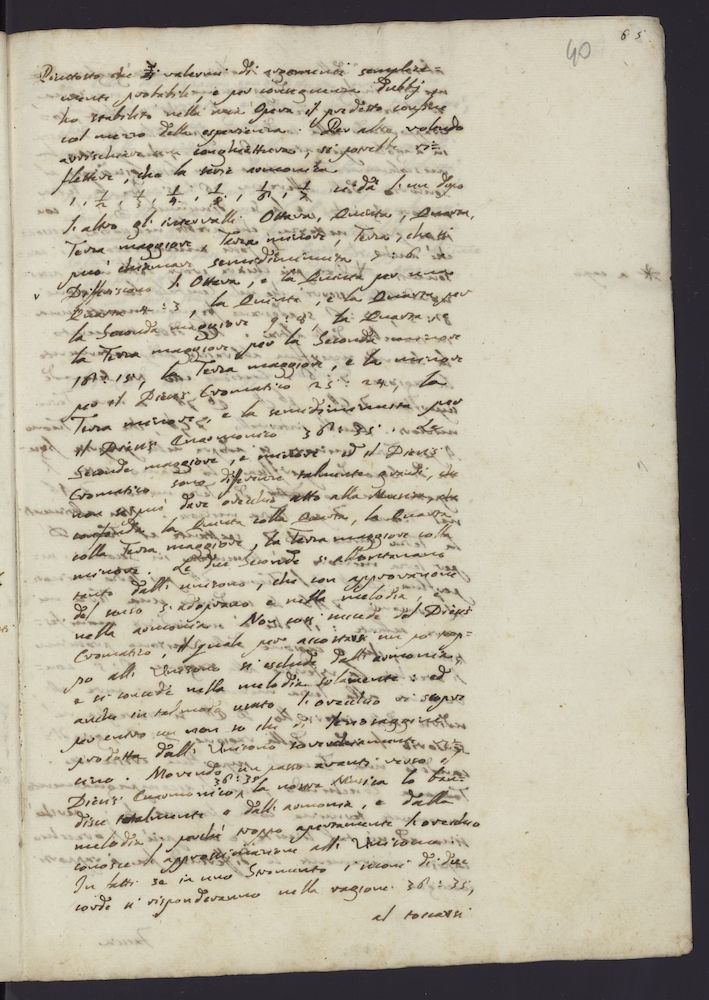 65
40
Piuttosto che di valermi di argomenti semplice=
mente probabili, e per conseguenza dubbj
ho stabilito nella mia Opera il predetto confine
col mezzo della esperienza. Per altro volendo
arrischiare una conghiettura, si potrebbe ri=
flettere, che la serie armonica
1, 1/2, 1/3, 1/4, 1/5, 1/6, 1/7 ci dà l'un dopo
l'altro gl'intervalli Ottava, Quinta, Quarta,
Terza maggiore, Terza minore, Terza, che si
può chiamare semidiminuita 7:6.
Differiscono l'Ottava, e la Quinta per una
Quarta 4:3, la Quinta, e la Quarta per
la Seconda maggiore 9:8, la Quarta, e
la Terza maggiore per la Seconda minore
16:15, la Terza maggiore, e la minore
per il Diesis Cromatico 25:24. La
Terza minore, e la semidiminuita per
il Diesis Enarmonico 36:35. Le
Seconde maggiore, e minore, ed il Diesis
Cromatico sono differenze talmente grandi, che
non si può dare orecchio atto alla Musica, che
confonda la Quinta colla Quarta, la Quarta
colla Terza maggiore, la Terza maggiore colla
minore. Le due Seconde si allontanano
tanto dall'unisono, che con approvazione
del senso si adoprano e nella melodia, e
nella armonia. Non così succede del Diesis
Cromatico, il quale per accostarsi un po' trop=
po all'Unisono si esclude dall'armonia,
e si concede nella melodia solamente: ed
anche in tal modo usato, l'orecchio vi scopre
per entro un non so che di
prodotta dall'Unisono soverchiamente vi=
cino. Movendo un passo avanti verso il
Diesis Enarmonico 36:35, la nostra Musica lo ban=
disce totalmente e dall'armonia, e dalla
melodia, perchè troppo apertamente l'orecchio
conosce l'approssimazione all'Unisono.
In fatti se in uno Stromento i suoni di due
corde si risponderanno nella ragione 36:35,
al toccarsi